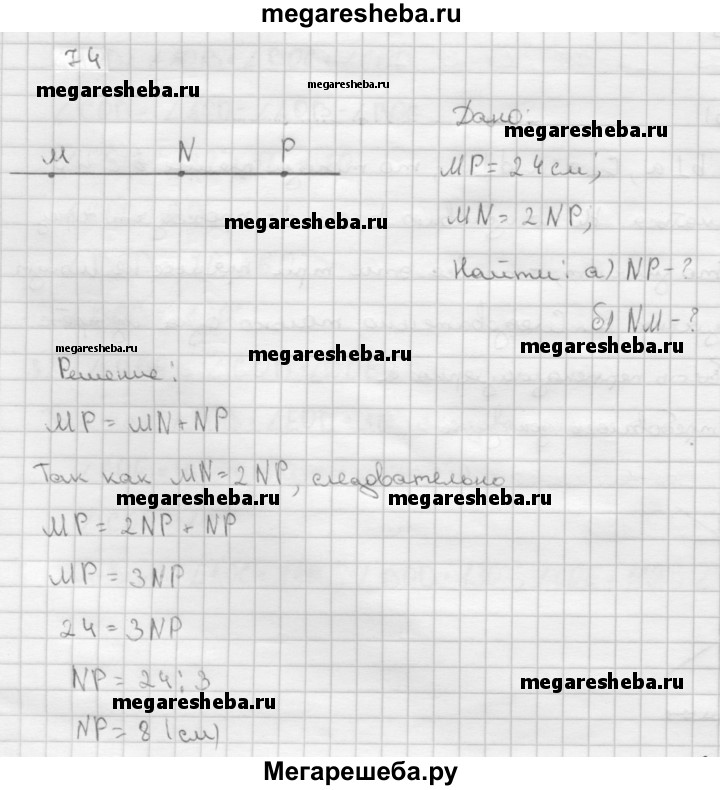 megaresheba.ru
74
megaresheba.ru
megaresheba.ru
M N P
Дано:
megaresheba.ru
MP = 24 см;
MN = 2 NP;
megaresheba.ru
Найти: а) NP - ?
б) NM - ?
megaresheba.ru
megaresheba.ru
megaresheba.ru
Решение:
MP = MN + NP
Так как MN = 2 NP, следовательно
megaresheba.ru
megaresheba.ru
MP = 2NP + NP
MP = 3NP
24 = 3NP
NP = 24 : 3
megaresheba.ru
megaresheba.ru
NP = 8 (см)
Мегарешеба.ру